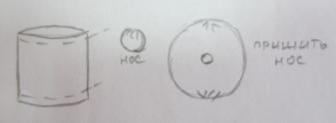 нос
пришить
нос